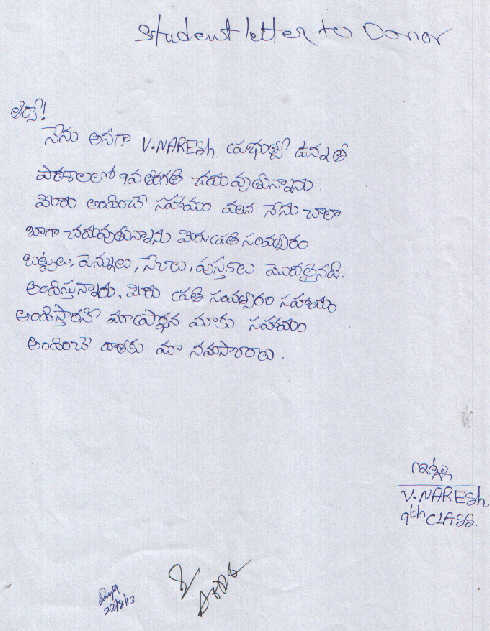 Student letter to Donor
నేను అనగా V. NARESH యుభుత్వ ఉన్నత
పాఠశాలలో 9వ తరగతి చదువుతున్నాను
మీరు అందించే సహాయం వలన నేను చాలా
బాగా చదువుతున్నాను మీరు ప్రతి సంవత్సరం
బట్టలు, పెన్నులు, పేలాలు, పుస్తకాలు మొదలైనవి
అందిస్తున్నారు. మీరు ప్రతి సంవత్సరం సహాయం
అందిస్తారని మా ప్రార్థన మాకు సహాయం
అందించే దాతకు మా నమస్కారాలు.
ఇట్లు
V. NARESH
9th CLASS.